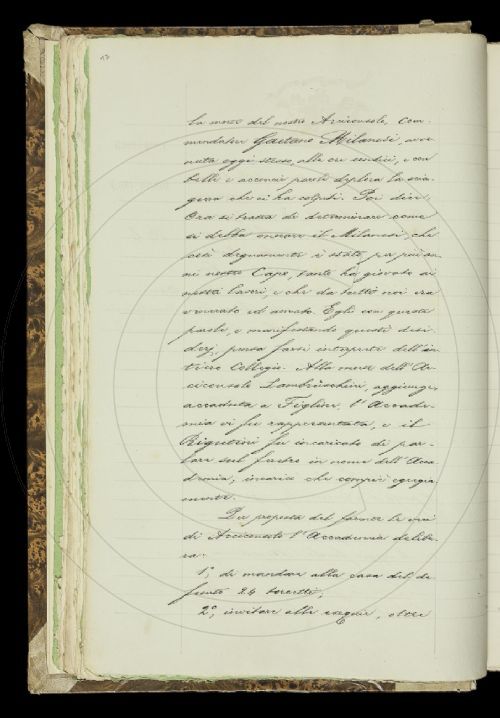 la morte del nostro Arciconsolo, Com-
mendatore Gaetano Milanesi, avve-
nuta oggi stesso, alle ore undici, e con
belle e acconcie parole deplora la scia-
gura che ci ha colpiti. Poi dice:
Ora si tratta di determinare come
si debba onorare il Milanesi, che
così degnamente è stato per più an-
ni nostro Capo, tanto ha giovato ai
nostri lavori, e che da tutti noi era
venerato ed amato. Egli con queste
parole, e manifestando questi desi-
derj, pensa farsi interprete dell'in-
tiero Collegio. Alla morte dell'Ar-
ciconsolo Lambruschini, aggiunge,
accaduta a Figline, l'Accade-
mia vi fu rappresentata, e il
Rigutini fu incaricato di par-
lare sul feretro in nome dell'Acca-
demia, incarico che compiè egregia-
mente.
Per proposta del
di l'Accademia delibe-
ra:
1°, di mandare alla casa del de-
funto 24 torcetti;
2°, invitare alle esequie, oltre